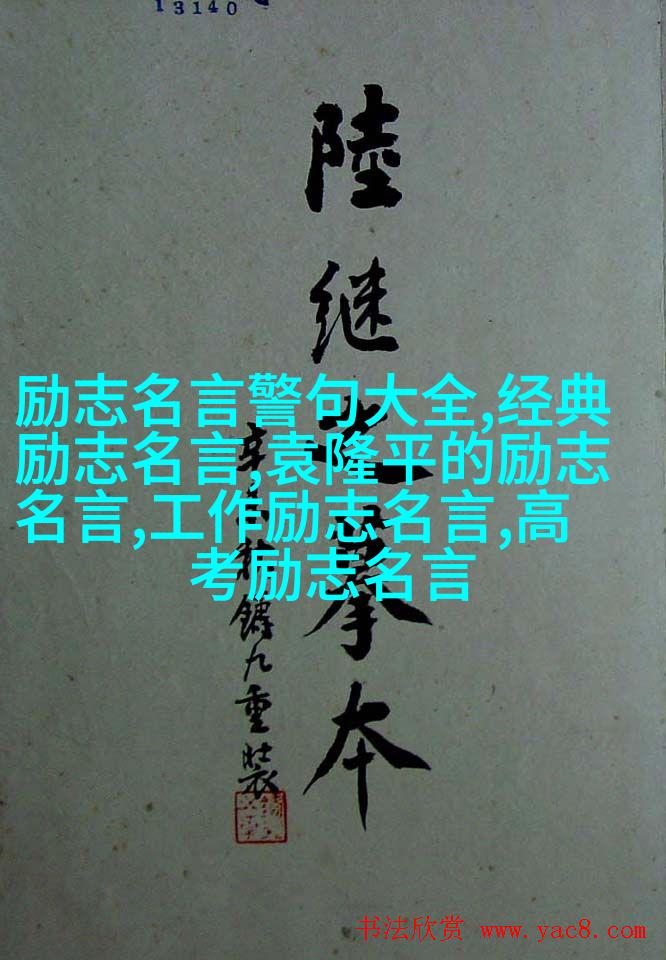 13140
陸继之摹本
九重裝
励志名言警句大全,经典
励志名言,袁隆平的励志
名言,工作励志名言,高
考励志名言
书法欣赏 www.yac8.com